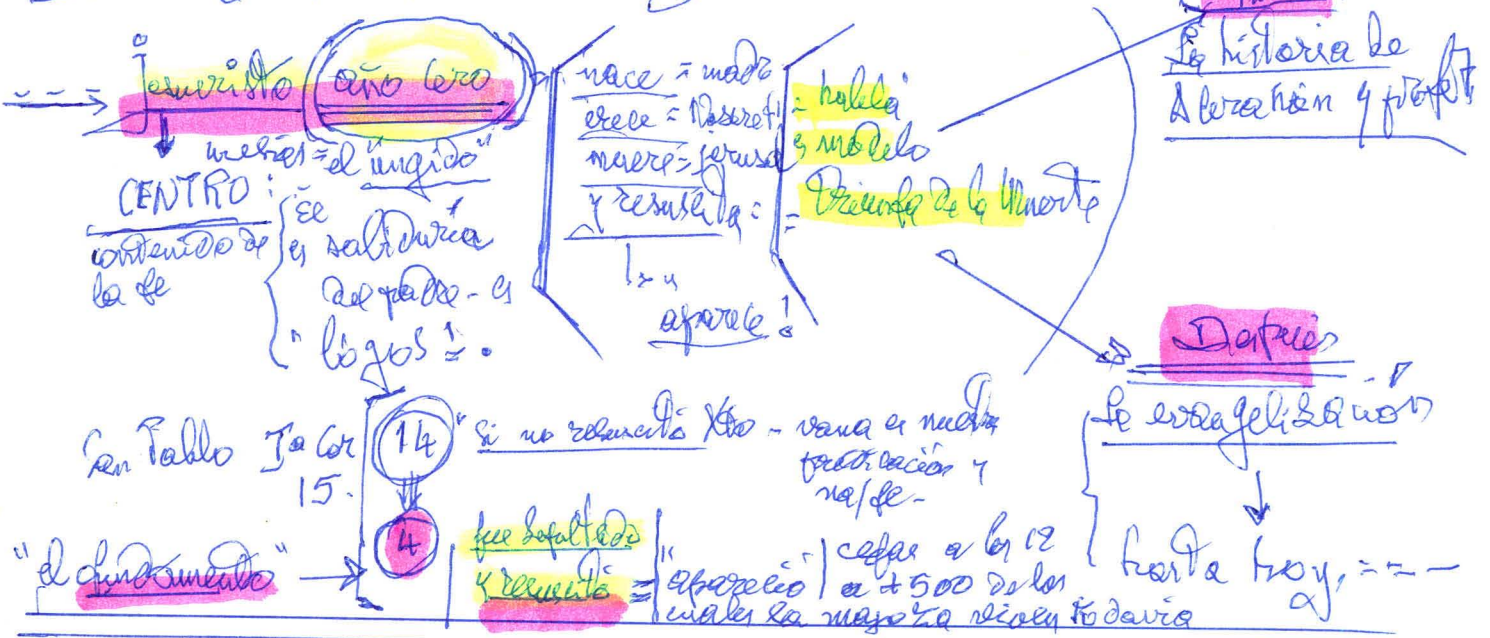 Jesucristo año cero
mesías = el "ungido"
CENTRO:
contenido de
la fe
Él
es sabiduría
del padre - es
"lógos".
nace = madre
crece = Nazaret
muere = jerusal
y resucita =
aparece!
= habla
es modelo
= Triunfa de la Muerte
La historia de
Abrahán y profet
Después
La evangelización
hasta hoy, - - -
San Pablo Ia Cor
15.
14 "si no resucitó Xto - vana es nuestra
predicación y
na/fe -
"el fundamento"
4 fue sepultado
y resucitó = "apareció" cefas a los 12
a + 500 de los
cuales la mayoría viven todavia